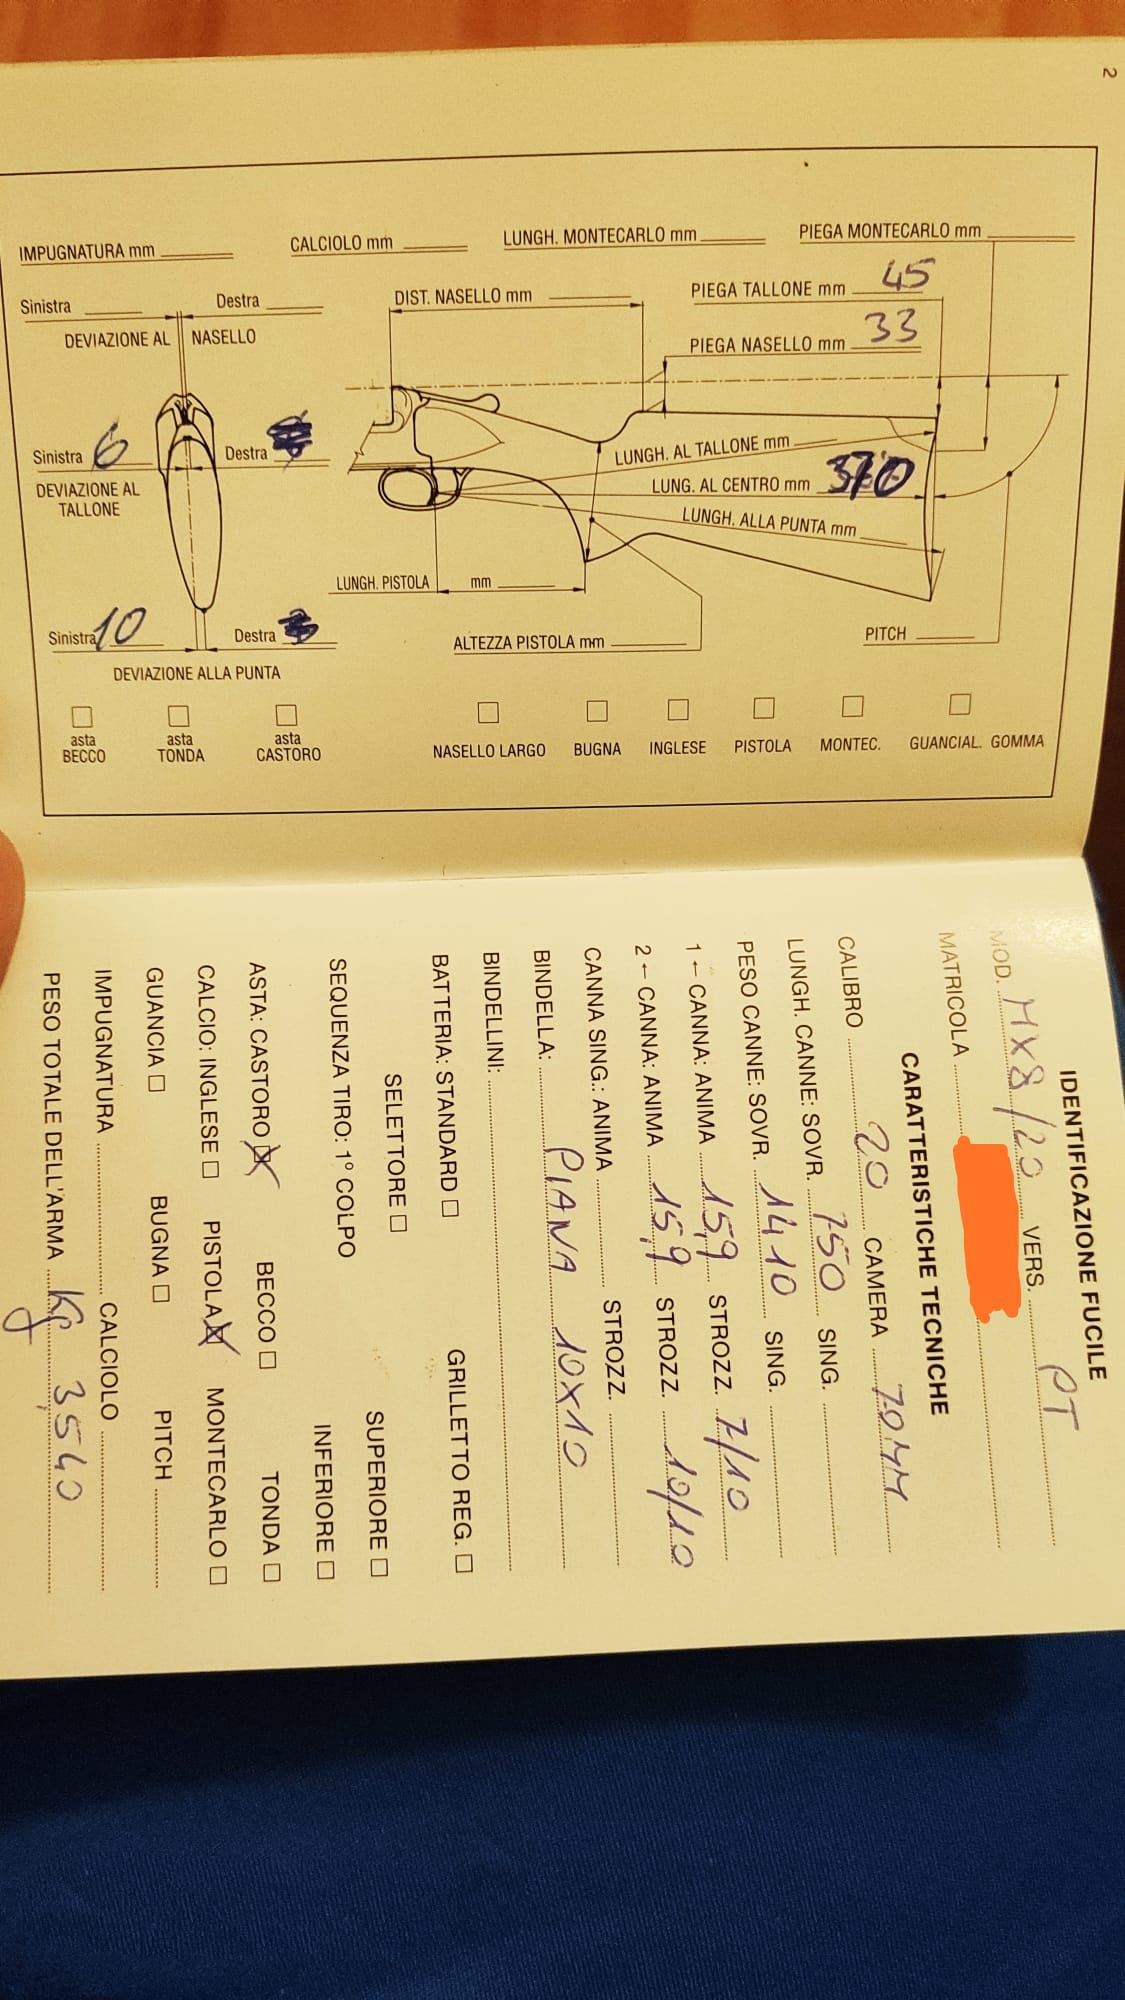 2
IMPUGNATURA mm
CALCIOLO mm
LUNGH. MONTECARLO mm
PIEGA MONTECARLO mm
Sinistra
Destra
DEVIAZIONE AL NASELLO
DIST. NASELLO mm
PIEGA TALLONE mm 45
PIEGA NASELLO mm 33
Sinistra 6
Destra
DEVIAZIONE AL
TALLONE
LUNGH. AL TALLONE mm
LUNG. AL CENTRO mm 370
LUNGH. ALLA PUNTA mm
LUNGH. PISTOLA mm
Sinistra 10
Destra
DEVIAZIONE ALLA PUNTA
ALTEZZA PISTOLA mm
PITCH
asta
BECCO
asta
TONDA
asta
CASTORO
NASELLO LARGO
BUGNA
INGLESE
PISTOLA
MONTEC.
GUANCIAL. GOMMA
IDENTIFICAZIONE FUCILE
MOD. MX8/20 VERS. PT
MATRICOLA
CARATTERISTICHE TECNICHE
CALIBRO 20 CAMERA 70MM
LUNGH. CANNE: SOVR. 750 SING.
PESO CANNE: SOVR. 1410 SING.
1 ← CANNA: ANIMA 15,9 STROZZ. 7/10
2 ← CANNA: ANIMA 15,9 STROZZ. 10/10
CANNA SING.: ANIMA STROZZ.
BINDELLA: PIANA 10X10
BINDELLINI:
BATTERIA: STANDARD GRILLETTO REG.
SELETTORE SUPERIORE
SEQUENZA TIRO: 1° COLPO INFERIORE
ASTA: CASTORO X BECCO TONDA
CALCIO: INGLESE PISTOLA X MONTECARLO
GUANCIA BUGNA PITCH
IMPUGNATURA CALCIOLO
PESO TOTALE DELL'ARMA Kg 3,540